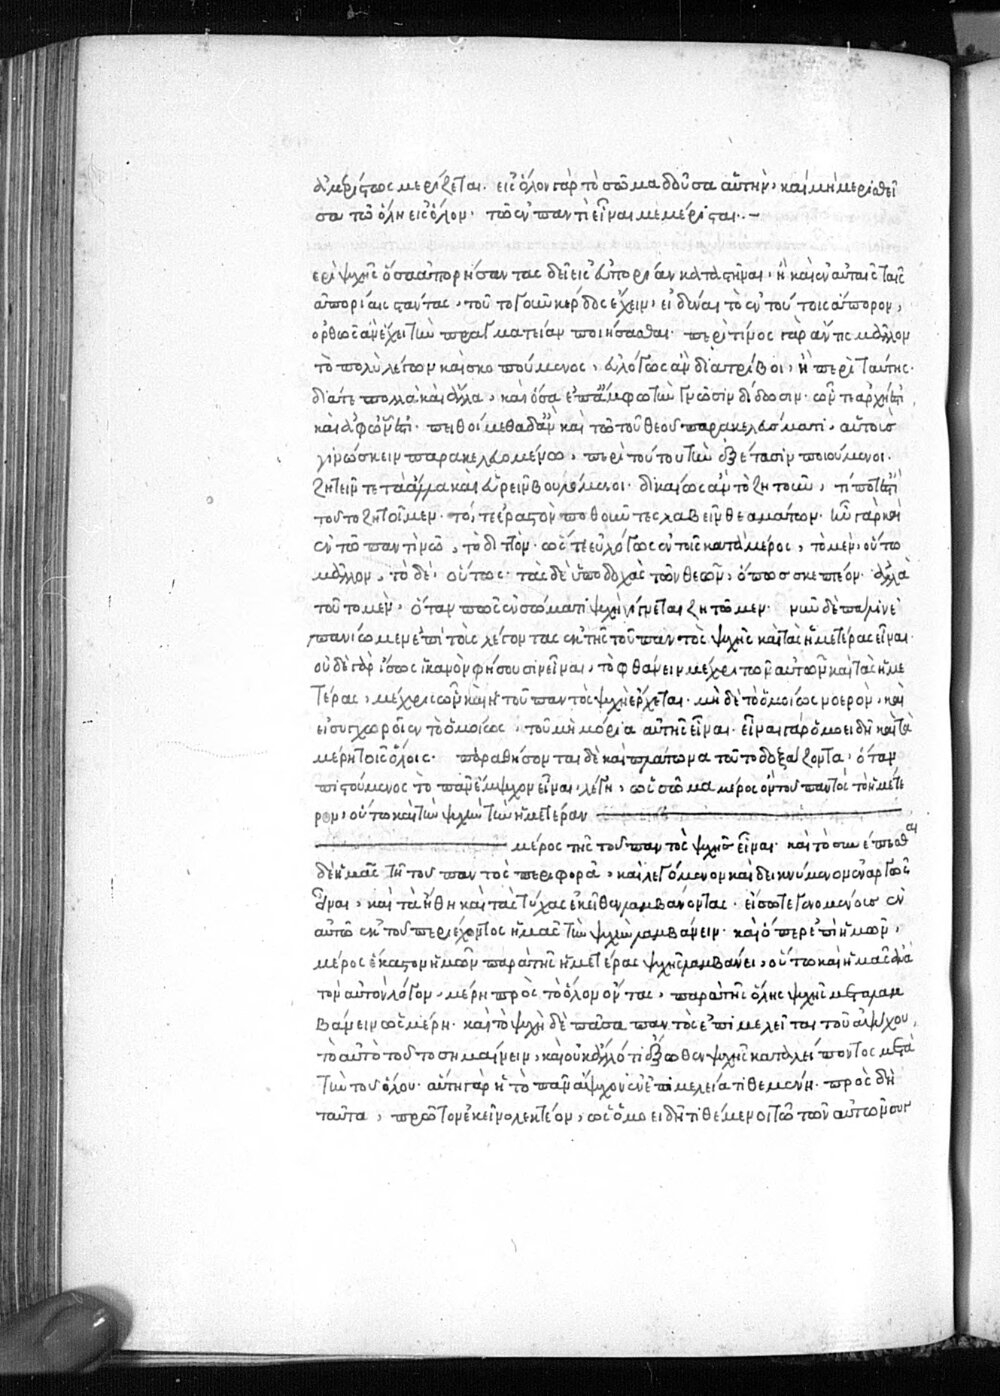 ἀμερίστως μερίζεται. εἰς ὅλον γὰρ τὸ σῶμα δοῦσα αὑτὴν, καὶ μὴ μερισθεῖ
σα τῷ ὅλη εἰς ὅλον. τῷ ἐν παντὶ εἶναι μεμέρισται. ~
ερὶ ψυχῆς ὅσα ἀπορήσαντας δεῖ εἰς εὐπορίαν καταστῆναι, ἢ καὶ ἐν αὐταῖς ταῖς
ἀπορίαις στάντας, τοῦτο γοῦν κέρδος ἔχειν, εἰδέναι τὸ ἐν τούτοις ἄπορον,
ὀρθῶς ἂν ἔχει τὴν πραγματείαν ποιήσασθαι. περὶ τίνος γὰρ ἄν τις μᾶλλον
τὸ πολὺ λέγων καὶ σκοπούμενος, εὐλόγως ἂν διατρίβοι, ἢ περὶ ταύτης.
διά τε πολλὰ καὶ ἄλλα, καὶ ὅσα ἐπ' ἄμφω τὴν γνῶσιν δίδωσιν. ὧν τε ἀρχή ἐστι,
καὶ ἀφ' ὧν ἐστι. πειθοίμεθα δ' ἂν καὶ τῷ τοῦ θεοῦ παρακελεύσματι, αὑτοὺς
γινώσκειν παρακελευομένῳ, περὶ τούτου τὴν ἐξέτασιν ποιούμενοι.
ζητεῖν τε τὰ ἄλλα καὶ εὑρεῖν βουλόμενοι. δικαίως ἂν τὸ ζητοῦν, τί ποτ' ἐστὶ
τοῦτο ζητοῖμεν. τό, τε ἐραστὸν ποθοῦντες λαβεῖν θέαμα τῶν. ἦν γὰρ καὶ
ἐν τῷ παντὶ νῷ, τὸ διττόν. ὥστε εὐλόγως ἐν τοῖς κατὰ μέρος, τὸ μὲν, οὕτω
μᾶλλον, τὸ δὲ, οὕτως. τὰς δὲ ὑποδοχὰς τῶν θεῶν, ὅπως σκεπτέον. ἀλλὰ
τοῦτο μὲν, ὅταν πῶς ἐν σώματι ψυχὴ γίγνεται ζητῶμεν. νῦν δὲ πάλιν ἐ
πανίωμεν ἐπὶ τοὺς λέγοντας ἐκ τῆς τοῦ παντὸς ψυχῆς καὶ τὰς ἡμετέρας εἶναι.
οὐδὲ γὰρ ἴσως ἱκανὸν φήσουσιν εἶναι, τὸ φθάνειν μέχρι τῶν αὐτῶν καὶ τὰς ἡμε
τέρας, μέχρις ὧν καὶ ἡ τοῦ παντὸς ψυχὴ ἔρχεται. μηδὲ τὸ ὁμοίως νοερὸν, καὶ
εἰ συγχωροῖεν τὸ ὁμοίως, τοῦ μὴ μόρια αὐτῆς εἶναι. εἶναι γὰρ ὁμοειδῆ καὶ τὰ
μέρη τοῖς ὅλοις. παραθήσονται δὲ καὶ πλάτωνα τοῦτο δοξάζοντα, ὅταν
πιστούμενος τὸ πᾶν ἔμψυχον εἶναι, λέγῃ, ὡς σῶμα μέρος ὂν τοῦ παντὸς τὸ ἡμέτε
ρον, οὕτω καὶ τὴν ψυχὴν τὴν ἡμετέραν
μέρος τῆς τοῦ παντὸς ψυχῆς εἶναι. καὶ τὸ συνέπεσθαι
δὲ ἡμᾶς τῇ τοῦ παντὸς περιφορᾷ, καὶ λεγόμενον καὶ δεικνύμενον ἐναργῶς
εἶναι, καὶ τὰ ἤθη καὶ τὰς τύχας ἐκεῖθεν λαμβάνοντας. εἴσω τε γενομένους ἐν
αὐτῷ ἐκ τοῦ περιέχοντος ἡμᾶς τὴν ψυχὴν λαμβάνειν. καὶ ὅπερ ἐπὶ ἡμῶν,
μέρος ἕκαστον ἡμῶν παρὰ τῆς ἡμετέρας ψυχῆς λαμβάνει, οὕτω καὶ ἡμᾶς ἀνὰ
τὸν αὐτὸν λόγον, μέρη πρὸς τὸ ὅλον ὄντας, παρὰ τῆς ὅλης ψυχῆς μεταλαμ
βάνειν ὡς μέρη. καὶ τὸ ψυχὴ δὲ πᾶσα παντὸς ἐπιμελεῖται τοῦ ἀψύχου,
τὸ αὐτὸ τοῦτο σημαίνειν, καὶ οὐκ ἄλλό τι ἔξωθεν ψυχῆς καταλείποντος μετὰ
τὴν τοῦ ὅλου. αὕτη γὰρ ἡ τὸ πᾶν ἄψυχον ἐν ἐπιμελείᾳ τιθεμένη. πρὸς δὴ
ταῦτα, πρῶτον ἐκεῖνο λεκτέον, ὡς ὁμοειδῆ τιθέμενοι τῷ τῶν αὐτῶν συν